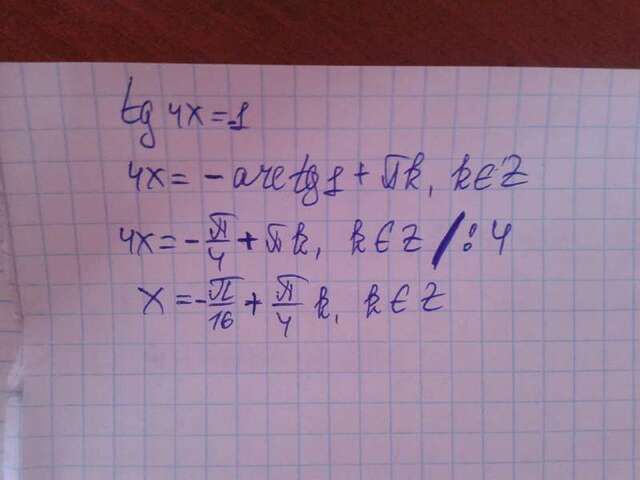 tg 4x = -1
4x = - arctg1 + πk, k ∈ Z
4x = - π/4 + πk, k ∈ Z /: 4
x = - π/16 + π/4 k, k ∈ Z